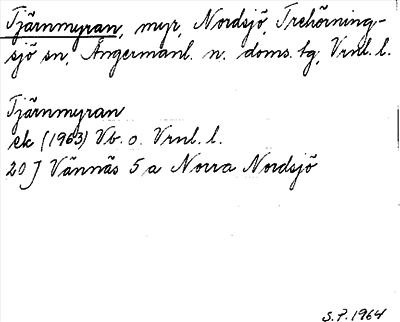 Tjärnmyran, myr, Nordsjö, Trehörning-
sjö sn, Ångermanl. n. doms. tg, Vrnl. l.
Tjärnmyran
ek (1963) Vb. o. Vrnl. l.
20 J Vännäs 5 a Norra Nordsjö
S.P. 1964